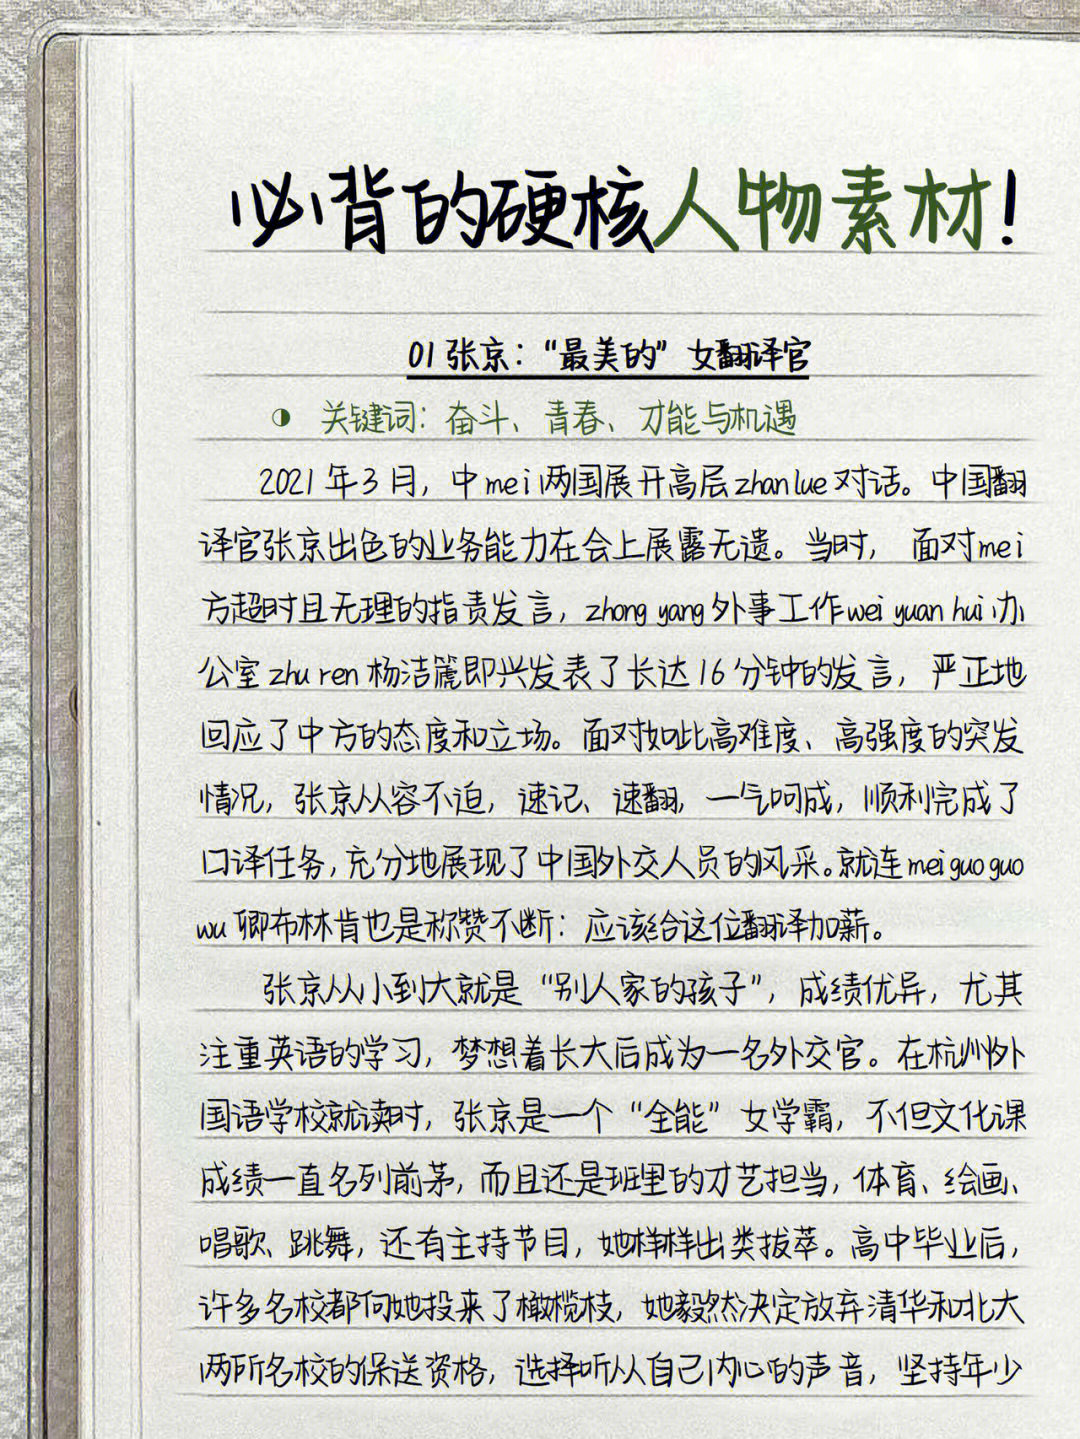 必背的硬核人物素材!
01 张京：“最美的”女翻译官
◑ 关键词：奋斗、青春、才能与机遇
2021 年 3 月，中mei两国展开高层zhanlue对话。中国翻
译官张京出色的业务能力在会上展露无遗。当时， 面对mei
方超时且无理的指责发言，zhong yang外事工作wei yuan hui办
公室 zhu ren 杨洁篪即兴发表了长达 16 分钟的发言，严正地
回应了中方的态度和立场。面对如此高难度、高强度的突发
情况，张京从容不迫，速记、速翻，一气呵成，顺利完成了
口译任务，充分地展现了中国外交人员的风采。就连mei guo guo
wu 卿布林肯也是称赞不断：应该给这位翻译加薪。
张京从小到大就是“别人家的孩子”，成绩优异，尤其
注重英语的学习，梦想着长大后成为一名外交官。在杭州外
国语学校就读时，张京是一个“全能”女学霸，不但文化课
成绩一直名列前茅，而且还是班里的才艺担当，体育、绘画、
唱歌、跳舞，还有主持节目，她样样出类拔萃。高中毕业后，
许多名校都向她投来了橄榄枝，她毅然决定放弃清华和北大
两所名校的保送资格，选择听从自己内心的声音，坚持年少